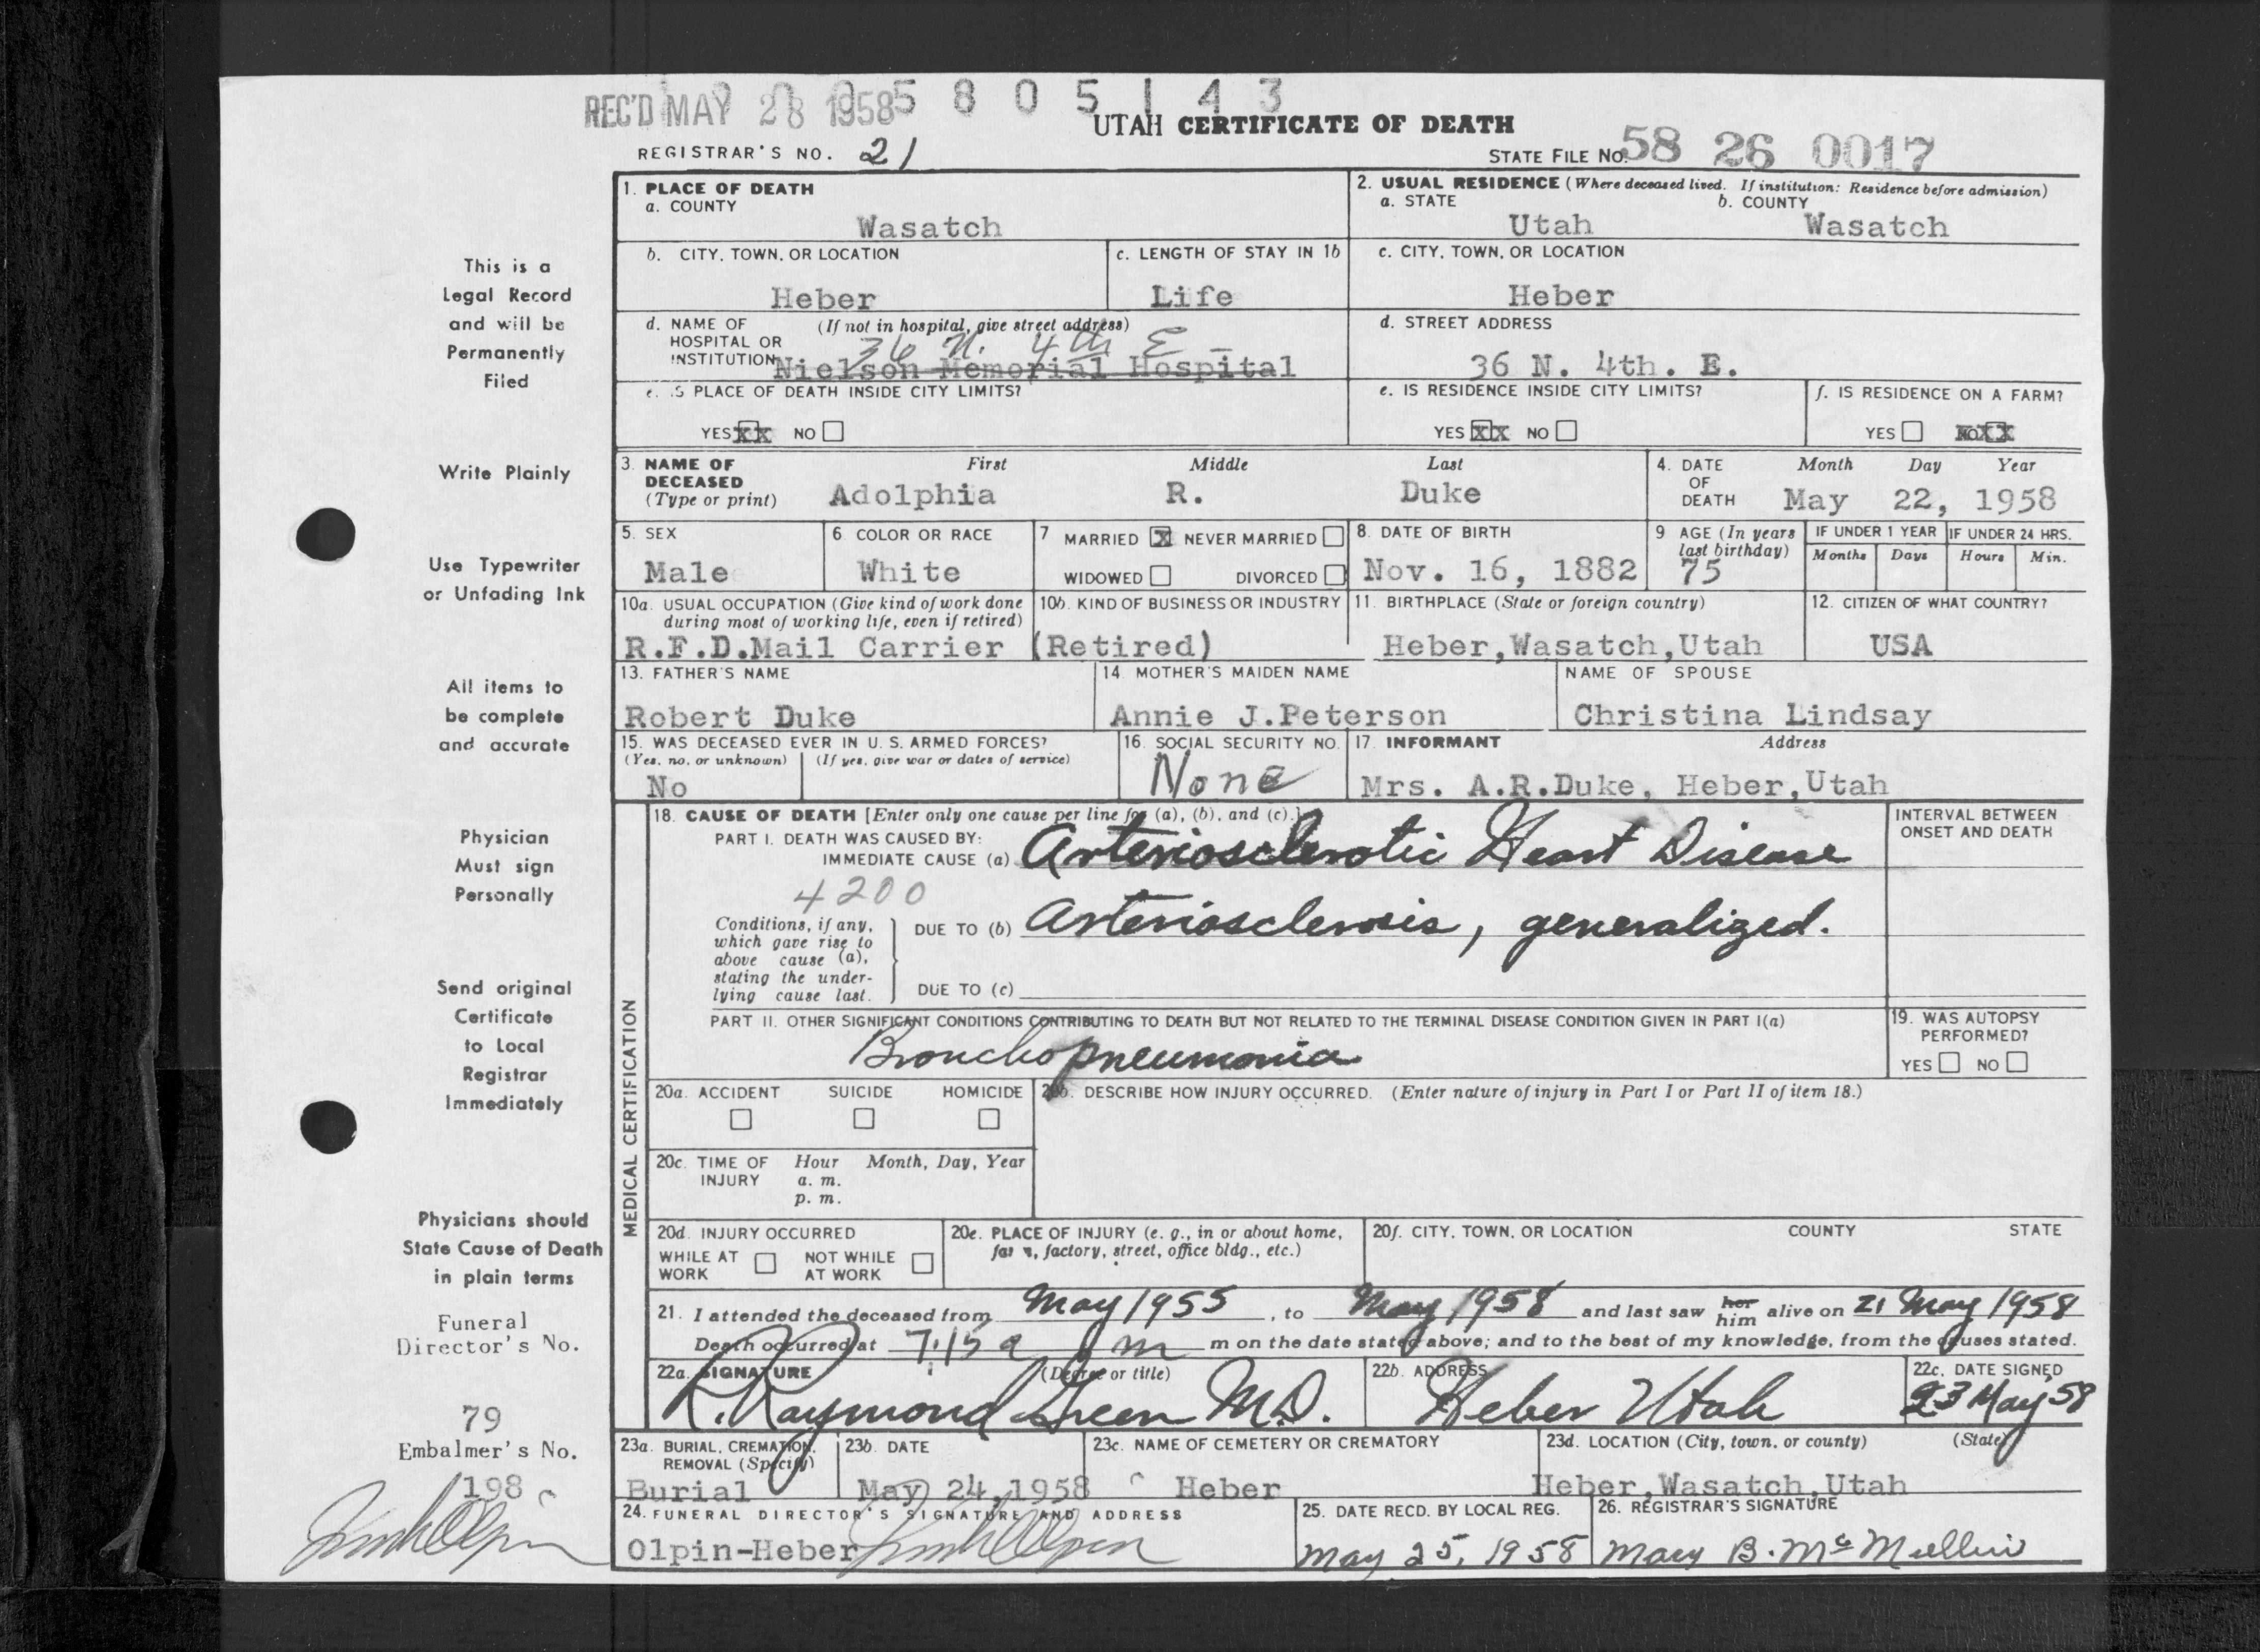 REC'D MAY 28 1958 5805143
UTAH CERTIFICATE OF DEATH
REGISTRAR'S NO. 21
STATE FILE NO. 58 26 0017
This is a
Legal Record
and will be
Permanently
Filed
Write Plainly
Use Typewriter
or Unfading Ink
All items to
be complete
and accurate
Physician
Must sign
Personally
Send original
Certificate
to Local
Registrar
Immediately
Physicians should
State Cause of Death
in plain terms
Funeral
Director's No.
79
Embalmer's No.
198
1. PLACE OF DEATH
a. COUNTY
Wasatch
2. USUAL RESIDENCE (Where deceased lived. If institution: Residence before admission)
a. STATE b. COUNTY
Utah Wasatch
b. CITY, TOWN, OR LOCATION
Heber
c. LENGTH OF STAY IN 1b
Life
c. CITY, TOWN, OR LOCATION
Heber
d. NAME OF HOSPITAL OR INSTITUTION (If not in hospital, give street address)
36 N. 4th E
Nielson Memorial Hospital
d. STREET ADDRESS
36 N. 4th. E.
e. IS PLACE OF DEATH INSIDE CITY LIMITS?
YES XX NO
e. IS RESIDENCE INSIDE CITY LIMITS?
YES XX NO
f. IS RESIDENCE ON A FARM?
YES NO XX
3. NAME OF DECEASED (Type or print) First Middle Last
Adolphia R. Duke
4. DATE OF DEATH Month Day Year
May 22, 1958
5. SEX
Male
6 COLOR OR RACE
White
7 MARRIED X NEVER MARRIED
WIDOWED DIVORCED
8. DATE OF BIRTH
Nov. 16, 1882
9 AGE (In years last birthday)
75
IF UNDER 1 YEAR
Months Days
IF UNDER 24 HRS.
Hours Min.
10a. USUAL OCCUPATION (Give kind of work done during most of working life, even if retired)
10b. KIND OF BUSINESS OR INDUSTRY
R.F.D.Mail Carrier (Retired)
11. BIRTHPLACE (State or foreign country)
Heber,Wasatch,Utah
12. CITIZEN OF WHAT COUNTRY?
USA
13. FATHER'S NAME
Robert Duke
14 MOTHER'S MAIDEN NAME
Annie J.Peterson
NAME OF SPOUSE
Christina Lindsay
15. WAS DECEASED EVER IN U. S. ARMED FORCES?
(Yes, no, or unknown) (If yes, give war or dates of service)
No
16. SOCIAL SECURITY NO.
None
17. INFORMANT Address
Mrs. A.R.Duke, Heber,Utah
MEDICAL CERTIFICATION
18. CAUSE OF DEATH [Enter only one cause per line for (a), (b), and (c).]
INTERVAL BETWEEN ONSET AND DEATH
PART I. DEATH WAS CAUSED BY:
IMMEDIATE CAUSE (a) Arteriosclerotic Heart Disease
4200
Conditions, if any, which gave rise to above cause (a), stating the underlying cause last.
DUE TO (b) Arteriosclerosis, generalized.
DUE TO (c)
PART II. OTHER SIGNIFICANT CONDITIONS CONTRIBUTING TO DEATH BUT NOT RELATED TO THE TERMINAL DISEASE CONDITION GIVEN IN PART I(a)
Bronchopneumonia
19. WAS AUTOPSY PERFORMED?
YES NO
20a. ACCIDENT SUICIDE HOMICIDE
20b. DESCRIBE HOW INJURY OCCURRED. (Enter nature of injury in Part I or Part II of item 18.)
20c. TIME OF INJURY Hour Month, Day, Year
a. m.
p. m.
20d. INJURY OCCURRED
WHILE AT WORK NOT WHILE AT WORK
20e. PLACE OF INJURY (e. g., in or about home, farm, factory, street, office bldg., etc.)
20f. CITY, TOWN, OR LOCATION COUNTY STATE
21. I attended the deceased from May 1955, to May 1958 and last saw her him alive on 21 May 1958
Death occurred at 7:15 a m m on the date stated above; and to the best of my knowledge, from the causes stated.
22a. SIGNATURE (Degree or title)
R. Raymond Green M.D.
22b. ADDRESS
Heber Utah
22c. DATE SIGNED
23 May 58
23a. BURIAL, CREMATION, REMOVAL (Specify)
Burial
23b. DATE
May 24,1958
23c. NAME OF CEMETERY OR CREMATORY
Heber
23d. LOCATION (City, town, or county) (State)
Heber,Wasatch,Utah
24. FUNERAL DIRECTOR'S SIGNATURE AND ADDRESS
Olpin-Heber
25. DATE RECD. BY LOCAL REG.
May 25, 1958
26. REGISTRAR'S SIGNATURE
Mary B. McMullin